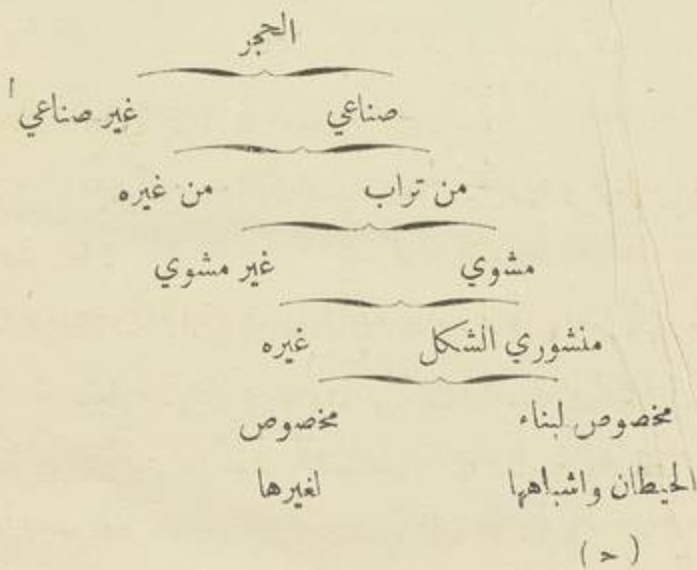 الحجر
صناعي غير صناعي ا
من تراب من غيره
مشوي غير مشوي
منشوري الشكل غيره
مخصوص لبناء مخصوص
الحيطان واشباهها لغيرها
( ح )